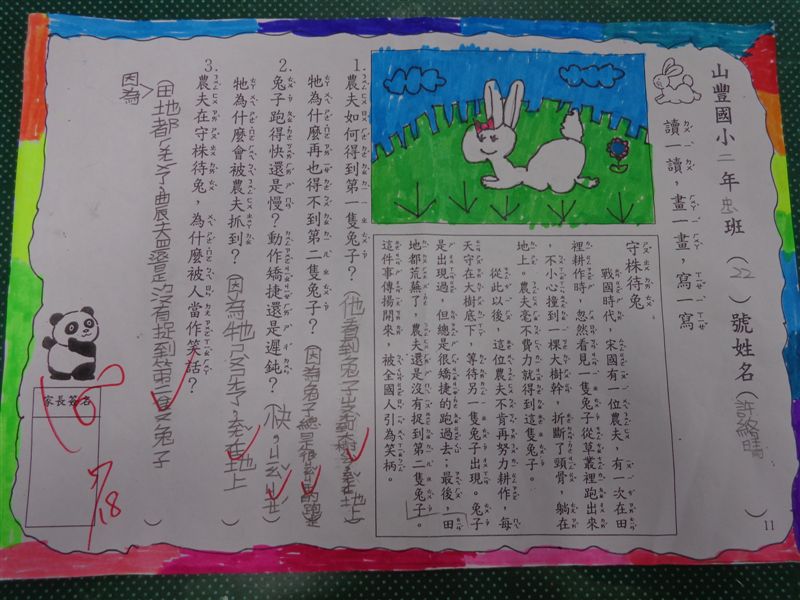 山豐國小二年忠班（22）號姓名（許絡晴）
讀一讀，畫一畫，寫一寫
守株待兔
戰國時代，宋國有一位農夫，有一次在田
裡耕作時，忽然看見一隻兔子從草叢裡跑出來
，不小心撞到一棵大樹幹，折斷了頸骨，躺在
地上。農夫毫不費力就得到這隻兔子。
從此以後，這位農夫不肯再努力耕作，每
天守在大樹底下，等待另一隻兔子出現。兔子
是出現過，但總是很矯捷的跑過去；最後，田
地都荒蕪了，農夫還是沒有捉到第二隻兔子。
這件事傳揚開來，被全國人引為笑柄。
1.農夫如何得到第一隻兔子？（他看到兔子出ㄌ地上）
牠為什麼再也得不到第二隻兔子？因為兔子總是很的跑
2.兔子跑得快還是慢？動作矯捷還是遲鈍？（快，
牠為什麼會被農夫抓到？（因為牠ㄌ，在地上）
3.農夫在守株待兔，為什麼被人當作笑話？
因為田地都ㄌ農夫還是沒有捉到第二隻兔子）
家長簽名
100
9/18
11